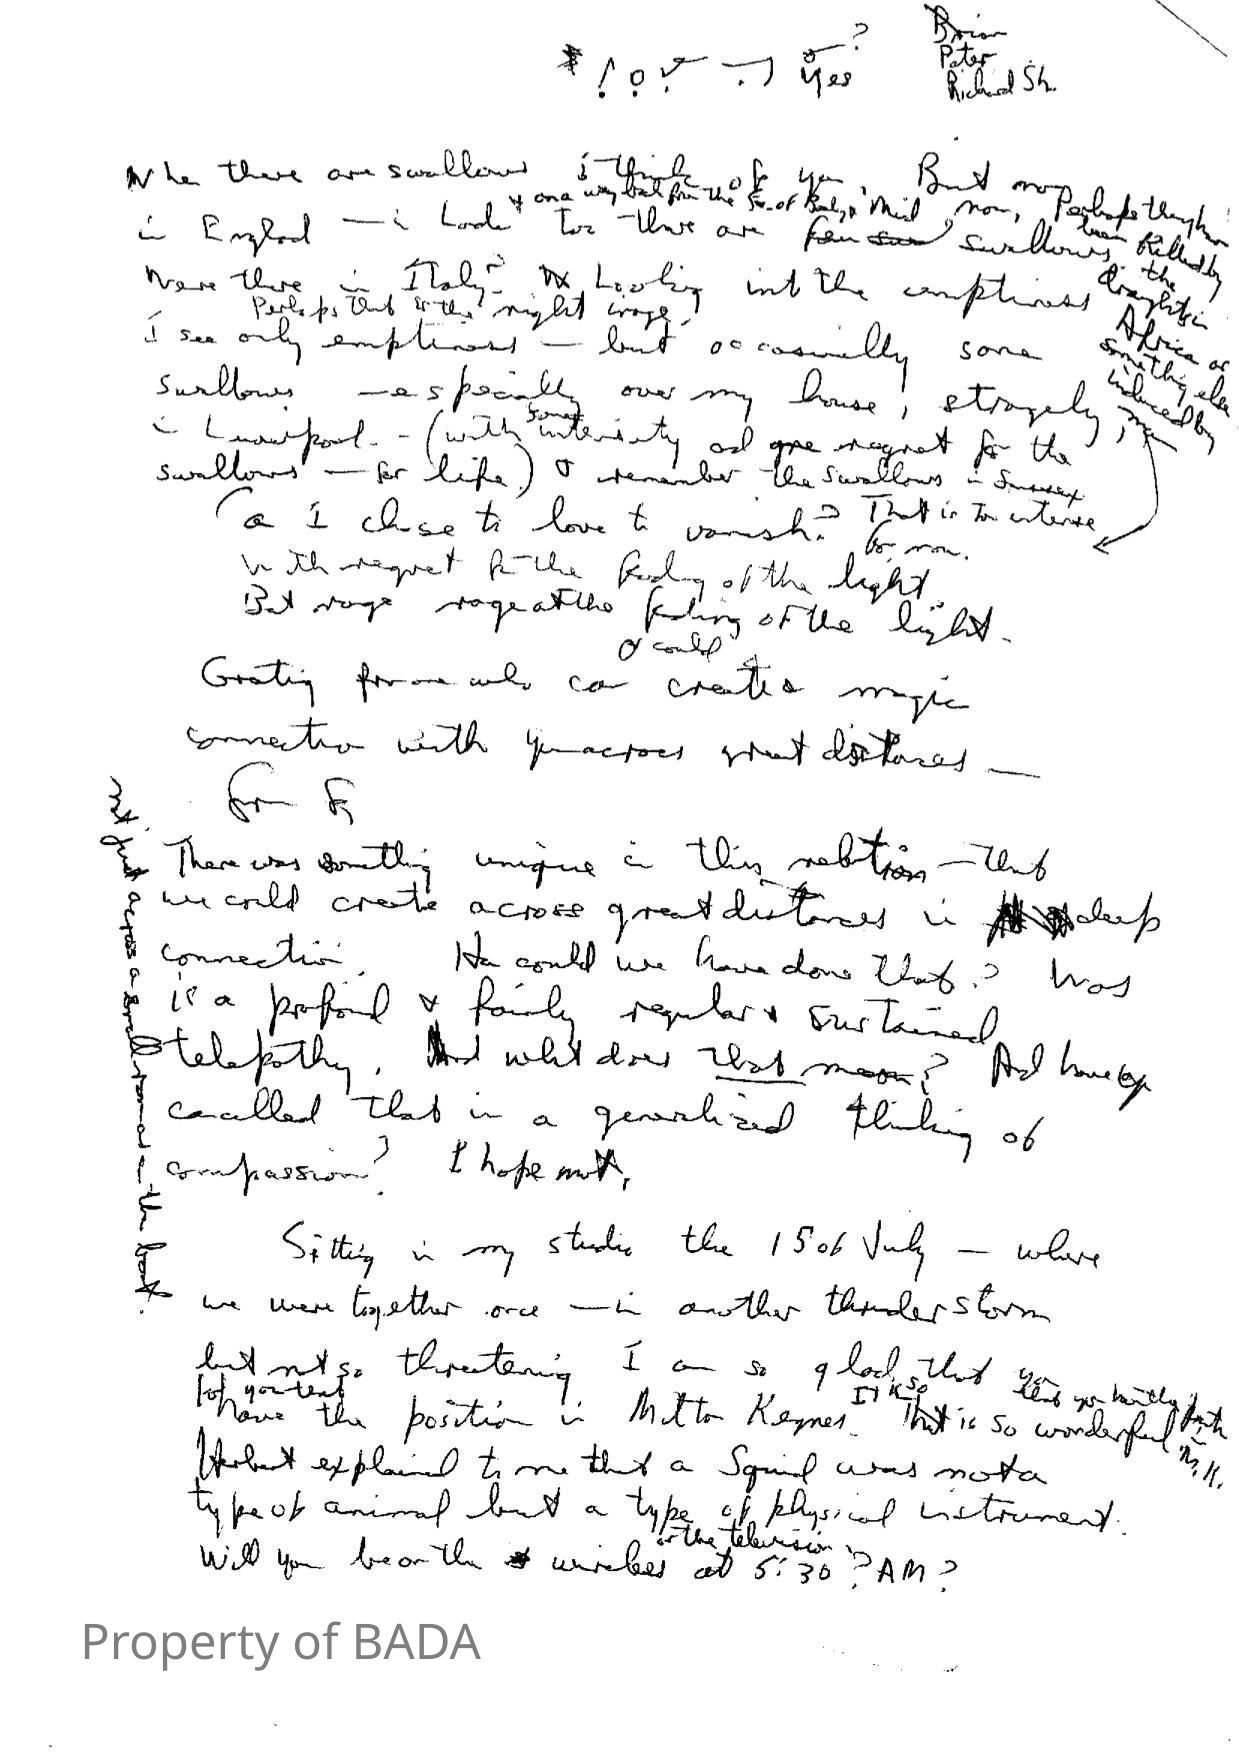 * ! ? Yes ?
Brian
Peter
Richard Sh.
Whe there are swallows I think of you. But now
& one way back from the of Mid now, Perhaps they have
been killed by
the
draughts in
Africa or
something else
induced by
man
in England — i look too there are few swallows
Were there in Italy? Looking into the emptiness
Perhaps that is the right image.
I see only emptiness — but occasionally some
swallows — especially over my house, strangely,
in Liverpool. - (with some intensity and regret for the
swallows — for life) & remember the swallows in Sussex
(or I chose to love to vanish? That is too intense
for now.
With regret for the fading of the light
But rage rage at the fading of the light.
& could
Greeting from one who can create a magic
connection with you across great distances —
from
There was something unique in this relation — that
we could create across great distances in deep
connection. How could we have done that? Was
is a profound & fairly regular & sustained
telepathy. And what does that mean? And have
cancelled that in a generalized thinking of
compassion? I hope not.
not just across a small room or in the boat.
Sitting in my studio the 15 of July — where
we were together once — in another thunder storm
but not so threatening I am so glad that you
have the position in Milton Keynes. It is so
That is so wonderful that you
in M.K.
Herbert explained to me that a Squid was not a
type of animal but a type of physical instrument.
or the television
Will you be on the wireless at 5:30? AM?
Property of BADA